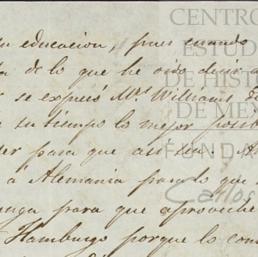 su educacion, pues cuando
de lo que he oido decir a
se expresó Mrs. Williams
su tiempo lo mejor posib
para que asi sea.
á Alemania para lo que
para que aproveche
Hamburgo porque lo con
CENTRO
ESTUD
DE HISTO
DE MÉX
FUND
Carlos